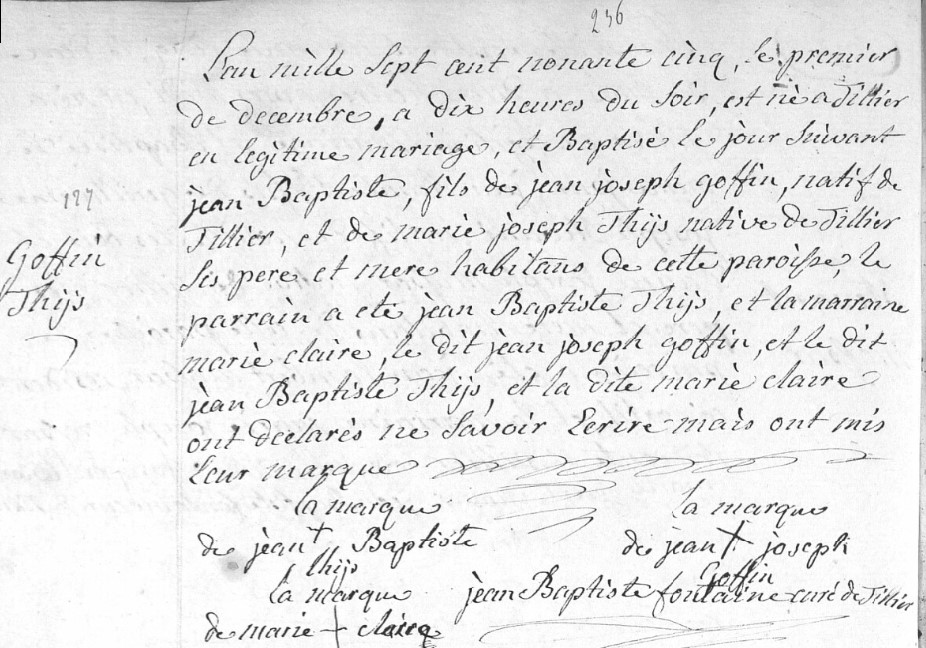 236
L'an mille sept cent nonante cinq, le premier
de decembre, a dix heures du soir, est né a Tillier
en legitime mariage, et Baptisé le jour suivant
jean Baptiste, fils de jean joseph goffin, natif de
Tillier, et de marie joseph Thijs native de Tillier
ses pere et mere habitans de cette paroisse, le
parrain a eté jean Baptiste Thijs, et la marraine
marie claire, le dit jean joseph goffin, et le dit
jean Baptiste Thijs, et la dite marie claire
ont declarés ne savoir Ecrire mais ont mis
Leur marque
127
Goffin
Thijs
la marque
de jean + Baptiste
thijs
la marque
de jean + joseph
Goffin
la marque
de marie + claire
jean Baptiste fontaine curé de Tillier